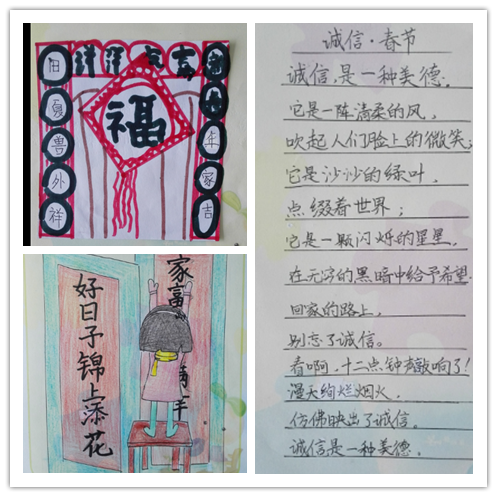 洋气喜
夏兽外祥
福
年家吉
好日子锦上添花
家富
诚信·春节
诚信,是一种美德。
它是一阵清柔的风,
吹起人们脸上的微笑;
它是沙沙的绿叶,
点缀着世界;
它是一颗闪烁的星星,
在无穷的黑暗中给予希望.
回家的路上,
别忘了诚信。
看啊,十二点钟声敲响了!
漫天绚烂烟火,
仿佛映出了诚信。
诚信是一种美德.